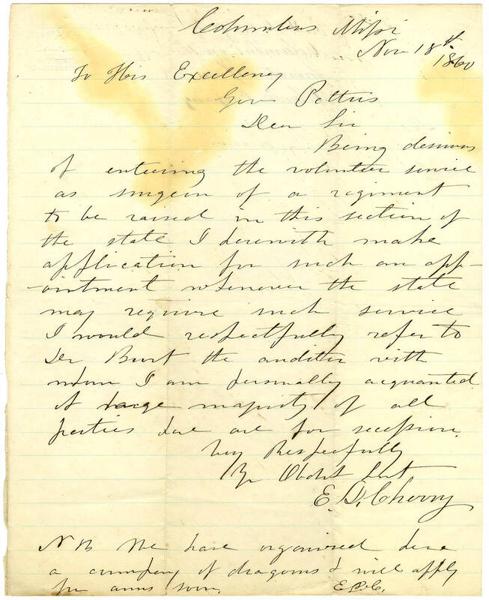 Columbus Missi
Nov 18th
1860
To His Excellency
Gov Pettus
Dear Sir
Being desirous
of entering the volunteer service
as surgeon of a regiment
to be raised in this section of
the state I herewith make
application for such an app-
ointment whenever the state
may require such service
I would respectfully refer to
Dr Burt the auditor with
whom I am personally acquainted
A large majority of all
parties here are for secession.
Very Respectfully
Yr Obdt Svt
E. D. Cherry
NB We have organized here
a company of dragoons & will apply
for arms soon. E.D.C.